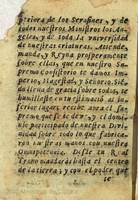 priora de los Serafines, y de
todos nuestros Ministros los Ang-
eles, y de toda la universidad
de nuestras criaturas, Atiende,
Manda, y Reyna prosperamente
sobre ellas, que en nuestro Su-
premo consistorio se damos Im-
perio, Magestad, y Señorio. Sie-
do llena de gracia sobre todos, te
humillaste en tu estimacion al in-
lugar, recibe aora el
premo que se te deve, y el domi-
nio participado de nuestra Divi-
nidad, sobre todo lo que fabrica-
ron nuestras manos con nuestra
Omnipotencia. Desde tu Real
Trono mandaràs hasta el centro
de la tierra, y con el poder que
te